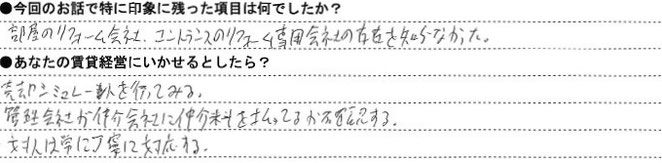 ●今回のお話で特に印象に残った項目は何でしたか？
部屋のリフォーム会社、エントランスのリフォーム専用会社の存在を知らなかった。
●あなたの賃貸経営にいかせるとしたら？
売却シミュレーションを行ってみる。
管理会社が仲介会社に仲介料を払ってるか確認する。
対人は常に丁寧に対応する。